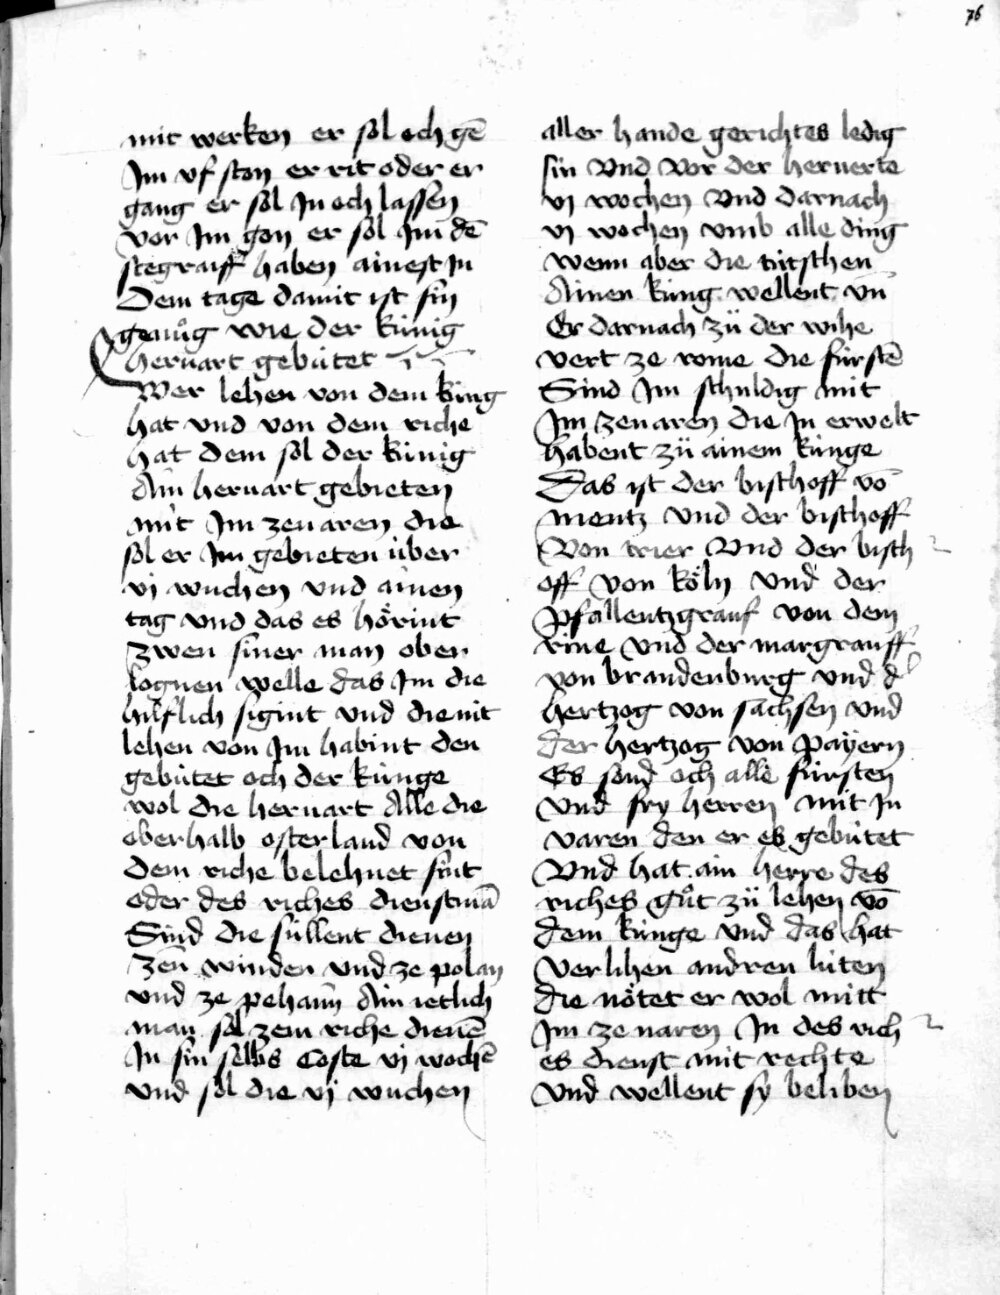 76
mit werken er sol och gē
Jm vf ston er rit oder er
gang er sol Jn och lassen
vor Jm gon er sol Jm dē
stegraiff haben ainest in
Dem tage damit ist sin
genůg wie der künig
heruart gebütet
Wer lehen von dem küng
hat vnd von dem riche
hat dem sol der künig
Ain heruart gebieten
mit Jm zeuaren die
sol er Jm gebieten über
vj wuchen vnd ainen
tag vnd das es hörint
zwen siner man ober
lognen welle das Jm die
hilflich sigint vnd die mit
lehen von Jm habint den
gebütet och der künge
wol die heruart Alle die
oberhalb osterland von
dem riche belehnet sint
oder des riches dienstmā
Sind die süllent dienen
zen winden vnd ze polan
vnd ze pehaim Ain ietlich
man sol zem riche dienē
Jn sin selbs coste vj wochē
vnd sol die vj wuchen
aller hande gerichtes ledig
sin Vnd Vor der heruerte
vj wochen Vnd darnach
vj wochen vmb alle ding
wenn aber die tütschen
Ainen küng wellent vn̄
Er darnach zü der wihe
vert ze rome die fürstē
Sind Jm schuldig mit
Jm zeuaren die Jn erwelt
habent zü ainem künge
Das ist der bischoff vō
mentz vnd der bischoff
Von trier Vnd der bisch
off von köln vnd der
Pfallentzgrauf von dem
rine Vnd der margrauff
von brandenburg vnd d
hertzog von sachsen vnd
der hertzog von Payern
Es sond och alle fürsten
Vnd fry herren mit Jn
varen den er es gebütet
Vnd hat ain herre des
riches gůt zü lehen vō
dem künge vnd das hat
Verlihen andren lüten
die nötet er wol mitt
Jm ze uaren Jn des rich
es dienst mit rechte
Vnd wellent sy beliben